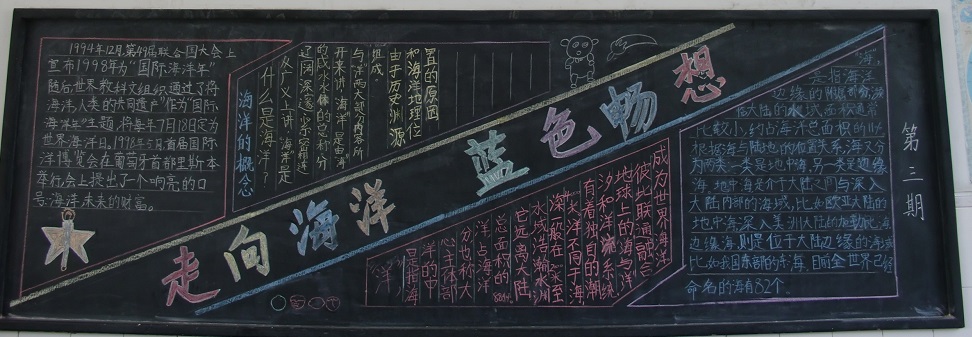 1994年12月,第49届联合国大会上
宣布1998年为“国际海洋年”
随后世界教科文组织通过了将
海洋人类的共同遗产”作为“国际
海洋年”主题,将每年7月18日定为
世界海洋日。1998年5月,首届国际
洋博览会在葡萄牙首都里斯本
举行会上提出了一个响亮的口
号:海洋未来的财富。
海洋的概念
什么是海洋?
从广义上讲,海洋是
辽阔深邃
的咸水水体的总称分
开来讲,海洋是由海
与洋两大部分内容所
组成。
由于历史渊源
和海洋地理位
置的原因
走向海洋 蓝色畅想
“洋”
是指海
洋的中
心主体部
分,也称大
洋,占海洋
总面积的89%
它远离大陆
水域浩瀚,水
深一般在
米,大洋不同于海
有着独自的潮
汐和洋流系统
地球上的海与洋
彼此联通融合
成为世界海洋
“海”
是指海洋
边缘的
临大陆的水域,面积通常
比较小,约占海洋总面积的11%
根据海与陆地的位置关系,海又分
为两类,一类是地中海,另一类是边缘
海,地中海是介于大陆之间与深入
大陆内部的海域,比如欧亚大陆的
地中海,深入美洲大陆的加勒比海
边缘海,则是位于大陆边缘的海域
比如我国东部的东海,目前全世界已经
命名的海有82个。
第三期